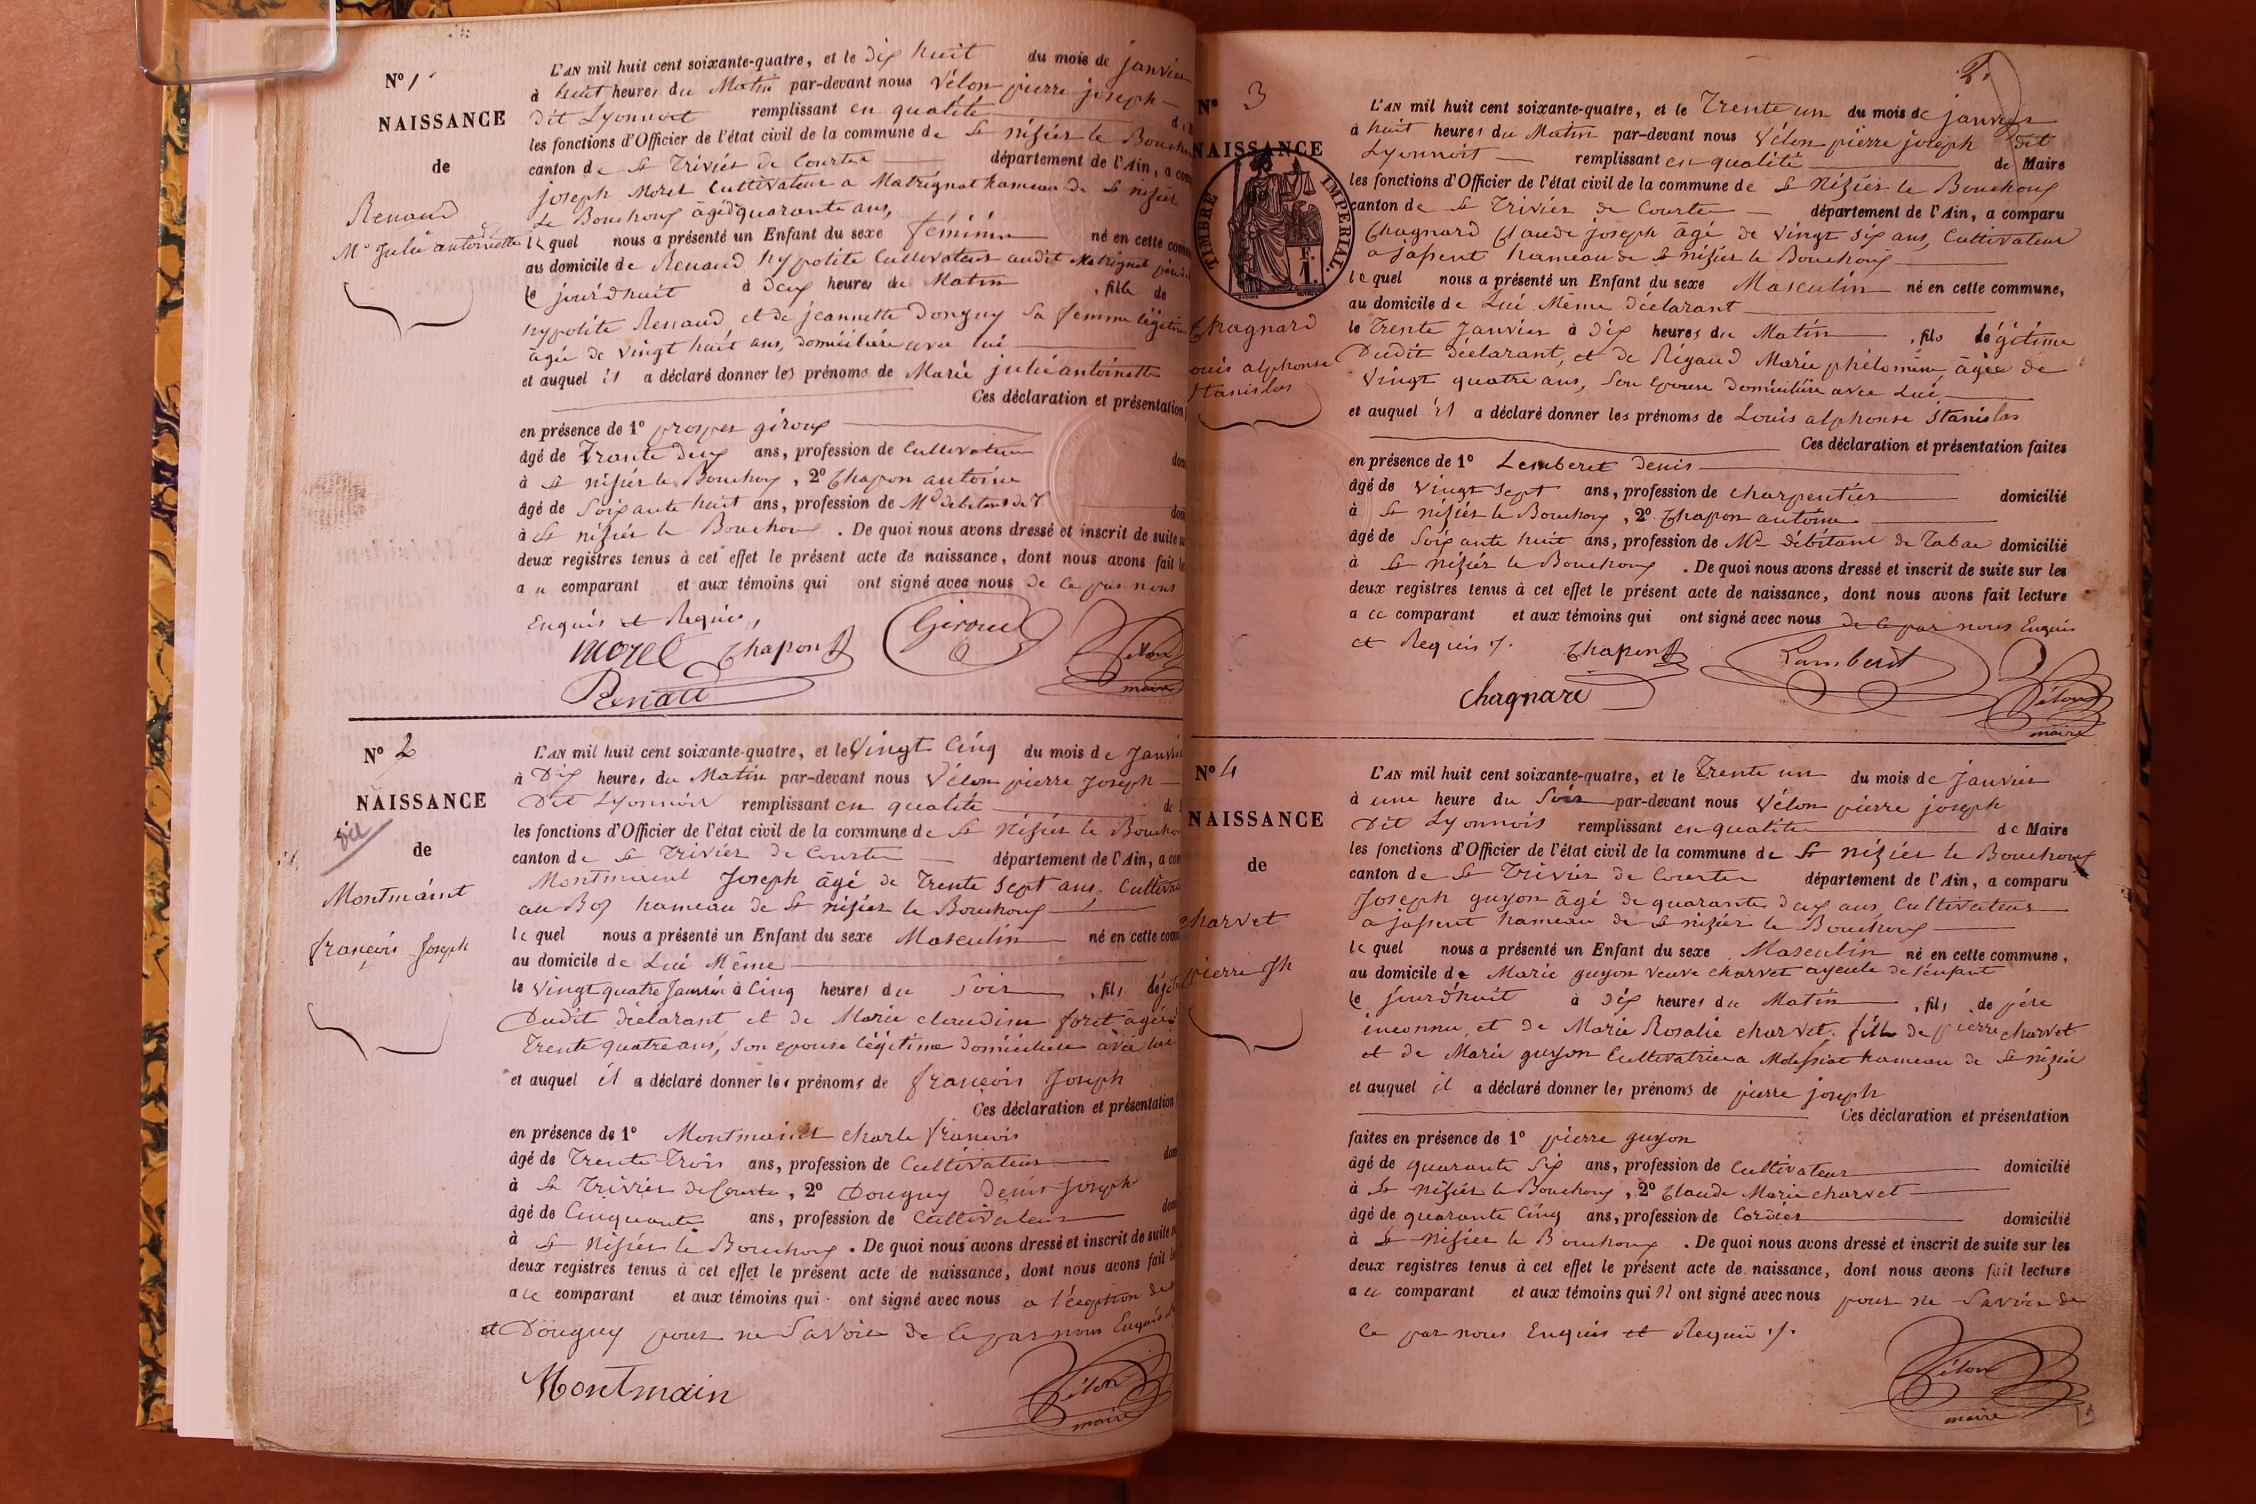 N° 1
NAISSANCE
de
Renaud
Mie Julie antoinette
L'AN mil huit cent soixante-quatre, et le dix huit du mois de janvier
à huit heures du Matin par-devant nous Vélon pierre joseph
dit Lyonnois remplissant en qualité
les fonctions d'Officier de l'état civil de la commune de St nizier le Bouchoux
canton de St Trivier de Courtes département de l'Ain, a com
joseph Morel Cultivateur a Matrignat hameau de St nizier
le Bouchoux âgé d quarante ans,
le quel nous a présenté un Enfant du sexe féminin né en cette comm
au domicile de Renaud hypolite Cultivateur audit Matrignat
le jourd'huit à deux heures du Matin , fille de
hypolite Renaud, et de jeannette Donguy sa femme légitime
âgée de vingt huit ans, domiciliée avec lui
et auquel il a déclaré donner les prénoms de Marie julie antoinette
Ces déclaration et présentation
en présence de 1° prosper giroux
âgé de Trante deux ans, profession de Cultivateur
à St nizier le Bouchoux, 2° Chapon antoine
âgé de Soixante huit ans, profession de Md debitant de T
à St nizier le Bouchoux . De quoi nous avons dressé et inscrit de suite
deux registres tenus à cet effet le présent acte de naissance, dont nous avons fait le
a u comparant et aux témoins qui ont signé avec nous de ce par nous
Enquis et Requis,
morel Chapon Giroud
Renaud Vélon
maire
N° 2
NAISSANCE
de
Montmaint
françois Joseph
L'AN mil huit cent soixante-quatre, et le Vingt Cinq du mois de Janvier
à Dix heures du Matin par-devant nous Vélon pierre Joseph
Dit Lyonnois remplissant en qualité de
les fonctions d'Officier de l'état civil de la commune de St Nizier le Boucho
canton de St Trivier de Courtes département de l'Ain, a com
Montmaint Joseph âgé de Trente Sept ans, Cultiva
au Boz hameau de St nizier le Bouchoux
le quel nous a présenté un Enfant du sexe Masculin né en cette comm
au domicile de Lui Même
le Vingt quatre Janvier à Cinq heures du Soir , fils légi
Dudit déclarant et de Marie claudine foret âgée d
Trente quatre ans, Son epouse légitime domiciliée avec lui
et auquel il a déclaré donner les prénoms de françois Joseph
Ces déclaration et présentation
en présence de 1° Montmaint charle françois
âgé de Trente Trois ans, profession de Cultivateur
à St Trivier de Courtes, 2° Donguy Denis Joseph
âgé de Cinquante ans, profession de Cultivateur
à St Nizier le Bouchoux . De quoi nous avons dressé et inscrit de suite
deux registres tenus à cet effet le présent acte de naissance, dont nous avons fait le
a ce comparant et aux témoins qui ont signé avec nous a l'éxeption de
et Donguy pour ne Savoir de ce par nous Enquis
Montmain Vélon
maire
2.
N° 3
NAISSANCE
TIMBRE IMPERIAL.
1 F.
Chagnard
ouis alphonse
Stanislas
L'AN mil huit cent soixante-quatre, et le Trente un du mois de janvier
à huit heures du Matin par-devant nous Vélon pierre joseph dit
Lyonnois remplissant en qualité de Maire
les fonctions d'Officier de l'état civil de la commune de St Nizier le Bouchoux
canton de St Trivier de Courtes département de l'Ain, a comparu
Chagnard Claude joseph âgé de vingt six ans, Cultivateur
a jassent hameau de St nizier le Bouchoux
le quel nous a présenté un Enfant du sexe Masculin né en cette commune,
au domicile de Lui Même déclarant
le Trente Janvier à Dix heures du Matin , fils légitime
Dudit déclarant, et de Rigaud Marie philomene, âgée de
Vingt quatre ans, Son epouse domiciliée avec Lui
et auquel il a déclaré donner les prénoms de Louis alphonse Stanislas
Ces déclaration et présentation faites
en présence de 1° Lemberet Denis
âgé de vingt sept ans, profession de charpentier domicilié
à St nizier le Bouchoux, 2° Chapon antoine
âgé de Soixante huit ans, profession de Md débitant de Tabac domicilié
à St Nizier le Bouchoux . De quoi nous avons dressé et inscrit de suite sur les
deux registres tenus à cet effet le présent acte de naissance, dont nous avons fait lecture
a ce comparant et aux témoins qui ont signé avec nous de ce par nous Enquis
et Requis ./. Chapon Lamberet
Chagnare Vélon
maire
N° 4
NAISSANCE
de
charvet
pierre Jh
L'AN mil huit cent soixante-quatre, et le Trente un du mois de Janvier
à une heure du Soir par-devant nous Vélon pierre joseph
Dit Lyonnois remplissant en qualité de Maire
les fonctions d'Officier de l'état civil de la commune de St nizier le Bouchoux
canton de St Trivier de Courtes département de l'Ain, a comparu
Joseph guyon âgé de quarante deux ans Cultivateur
a jassent hameau de St nizier le Bouchoux
le quel nous a présenté un Enfant du sexe Masculin né en cette commune,
au domicile de Marie guyon veuve charvet ayeule de l'enfant
le jourd'huit à Dix heures du Matin , fils de père
inconnu, et de Marie Rosalie charvet. fille de pierre charvet
et de Marie guyon Cultivatrice a hameau de St nizier
et auquel il a déclaré donner les prénoms de pierre joseph
Ces déclaration et présentation
faites en présence de 1° pierre guyon
âgé de quarante Six ans, profession de Cultivateur domicilié
à St nizier le Bouchoux, 2° Claude Marie charvet
âgé de quarante Cinq ans, profession de Cordier domicilié
à St Nizier le Bouchoux . De quoi nous avons dressé et inscrit de suite sur les
deux registres tenus à cet effet le présent acte de naissance, dont nous avons fait lecture
a ce comparant et aux témoins qui n ont signé avec nous pour ne Savoir de
ce par nous Enquis et Requis ./.
Vélon
maire